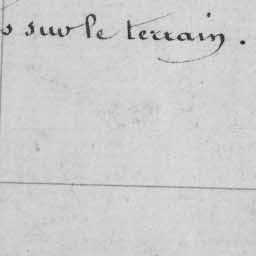 s sur le terrain.